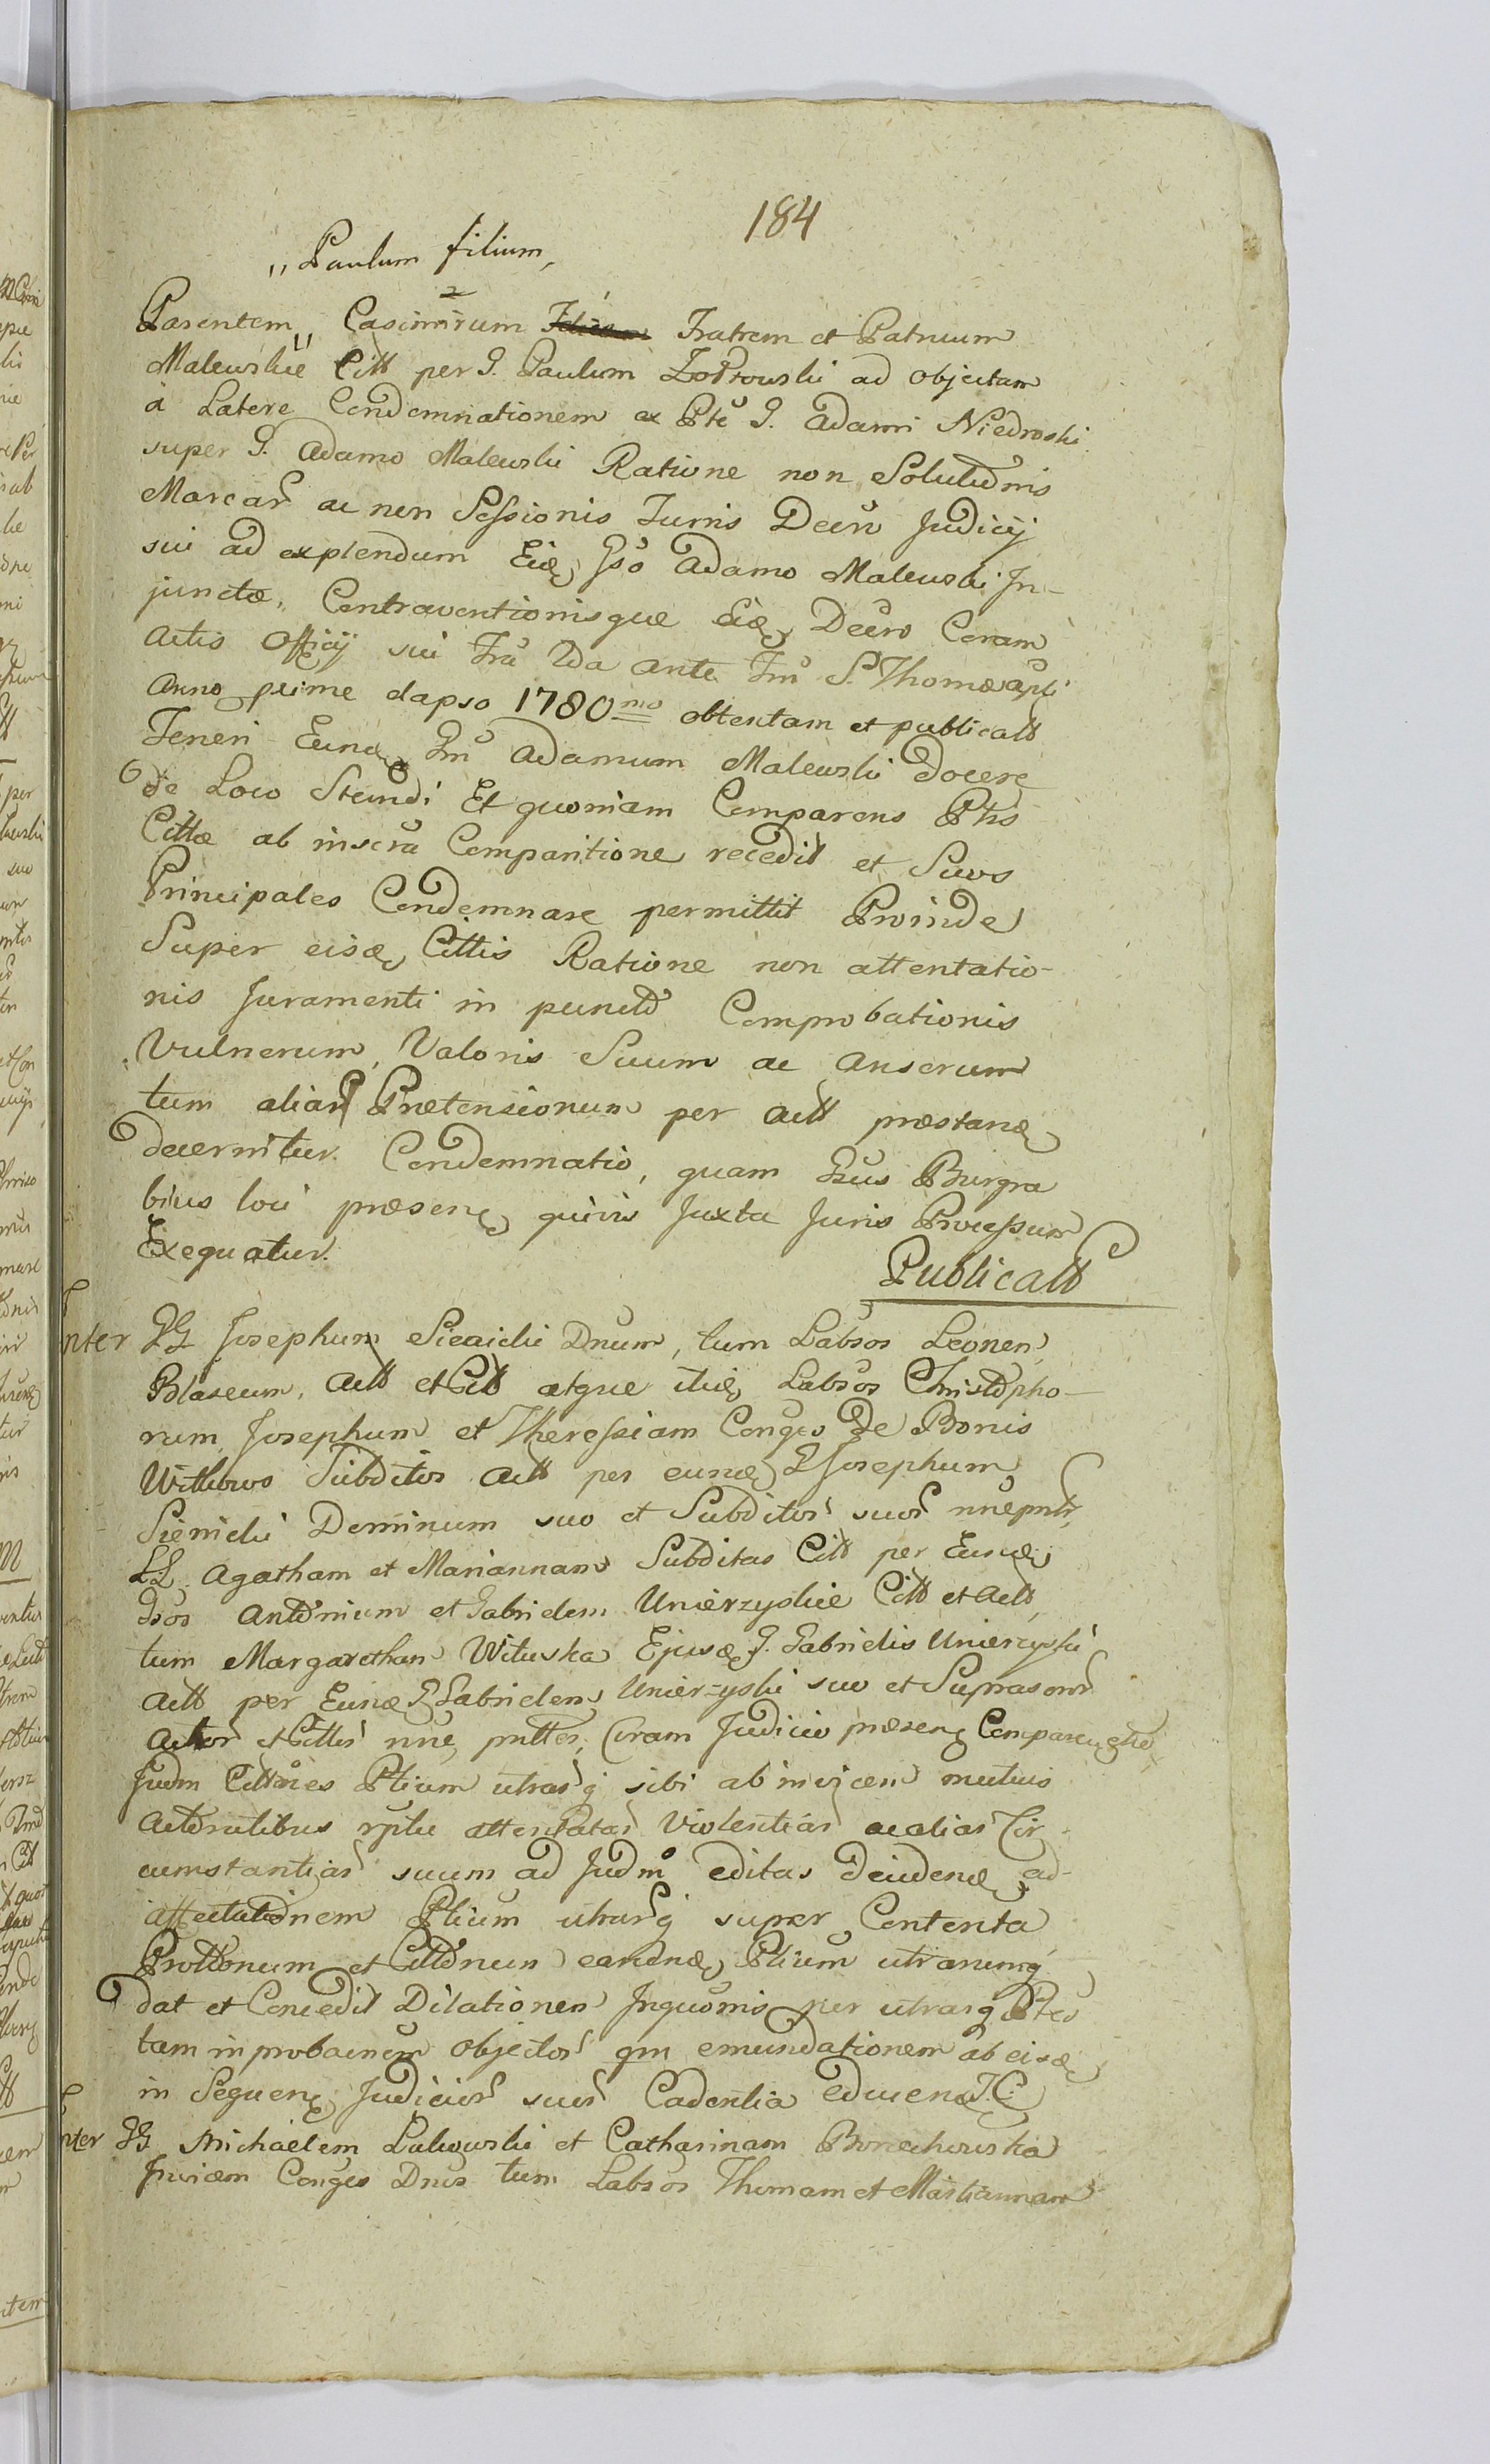 184
„Paulum filium,
Parentem„ Casimirum Fratrem et Patruum
Malewskie Citt per G. Paulum Zodrowski ad objectam
à Latere Condemnationem ex Pte G. Adami Niedroski
super G. Adamo Malewski Ratione non Solutionis
Marcar ac non Sessionis Turris Decro Judicij
sui ad explendum Eid Gso Adamo Malewski In-
junctæ, Contraventionisque Eid Decro Coram
Actis Officij sui Fra 2da ante Fm S. Thomæ Apli
Anno prime elapso 1780mo obtentam et publicatt
Teneri Eund Gm Adamum Malewski docere
de Loco Standi Et quoniam Comparens Ptis
Cittæ ab inscra Comparitione recedit et Suos
Principales Condemnare permittit Proinde
Super eisd Cittis Ratione non attentatio-
nis Juramenti in puncto Comprobationis
Vulnerum, Valoris Suum ac Anserum
tum aliar Prætensionum per Act præstand
decernitur. Condemnatio, quam Gsus Burgra
bius loci præsens quivis Juxta Juris Processum
Exequatur.
Publicatt
Inter GG Josephum Dnum, tum Labsos Leonem,
Blaseum, Act et Citt atque itid Labsos Christopho-
rum, Josephum et Theressiam Conges de Bonis
Witkowo Subditos Act per eund G Josephum
Dominum suo et Subditor suor nne
LL. Agatham et Mariannam Subditas Citt per Eund
Gsos Antonium et Gabrielem Unierzyskie Citt et Act
tum Margaretham Wituska Ejusd G. Gabrielis Unierzyski
Act per Eund G Gabrielem Unierzyski suo et
Actor et Cittor nne, Coram Judicio præsens
Judm Ptium utrarq sibi ab invicem mutuis
attentatar Violentiar ac aliar Cir-
cumstantiar suum ad Judm editas ad
affectationem Ptium utrarq super Contenta
et Cittonum earund Ptium utrarumq
dat et Concedit Dilationem per utrasq Ptes
tam in objector qm emundationem ab eisd
in Sequen Judicior suor Cadentia
Inter GG Michaelem et Catharinam
Conges Dnos tum Labsos Thomam et Mariannam